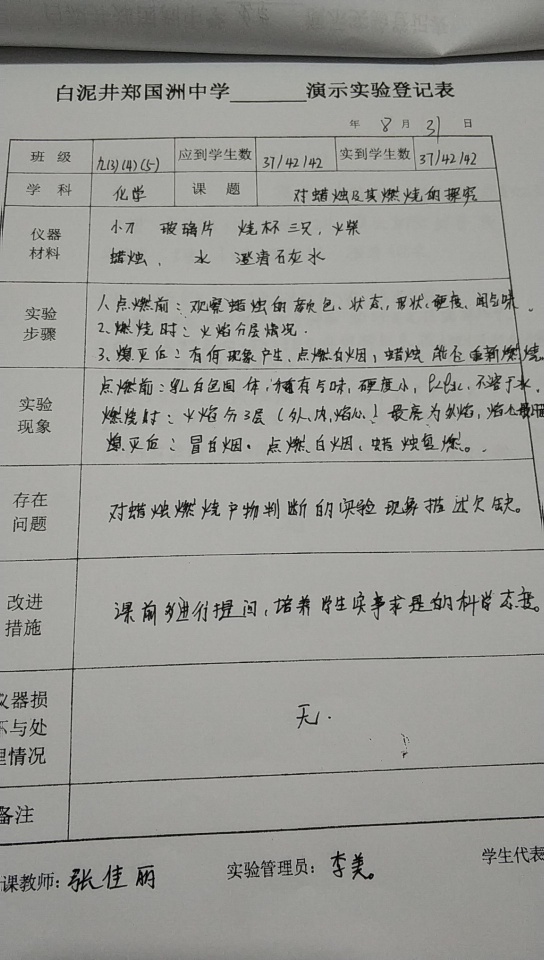 白泥井郑国洲中学______演示实验登记表
年 8 月 31 日
班 级 九(3)(4)(5) 应到学生数 37/42/42 实到学生数 37/42/42
学 科 化学 课 题 对蜡烛及其燃烧的探究
仪器材料 小刀 玻璃片 烧杯三只,火柴
蜡烛、 水 澄清石灰水
实验步骤 1、点燃前:观察蜡烛的颜色、状态,形状、硬度、闻气味。
2、燃烧时:火焰分层情况.
3、熄灭后:有何现象产生、点燃白烟,蜡烛能否重新燃烧。
实验现象 点燃前:乳白色固体,稍有气味,硬度小,ρ<ρ水,不溶于水.
燃烧时:火焰分3层(外、内、焰心)最亮为外焰,焰心最暗
熄灭后:冒白烟.点燃白烟、蜡烛复燃。
存在问题 对蜡烛燃烧产物判断的实验现象描述欠缺。
改进措施 课前多进行提问,培养学生实事求是的科学态度。
仪器损
坏与处 无.
理情况
备注
课教师:张佳丽 实验管理员:李美。 学生代表